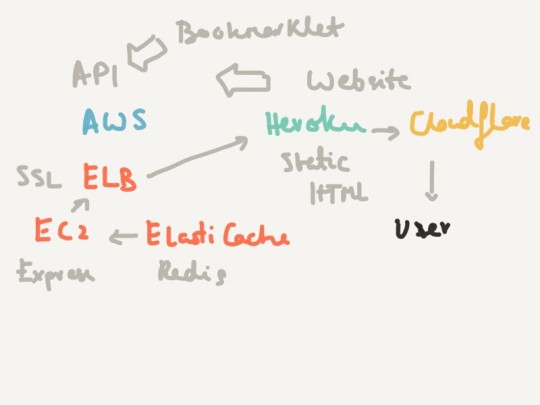 Bookmarklet
API
Website
AWS
Heroku
Cloudflare
Static
HTML
SSL
ELB
EC2
ElastiCache
User
Express
Redis